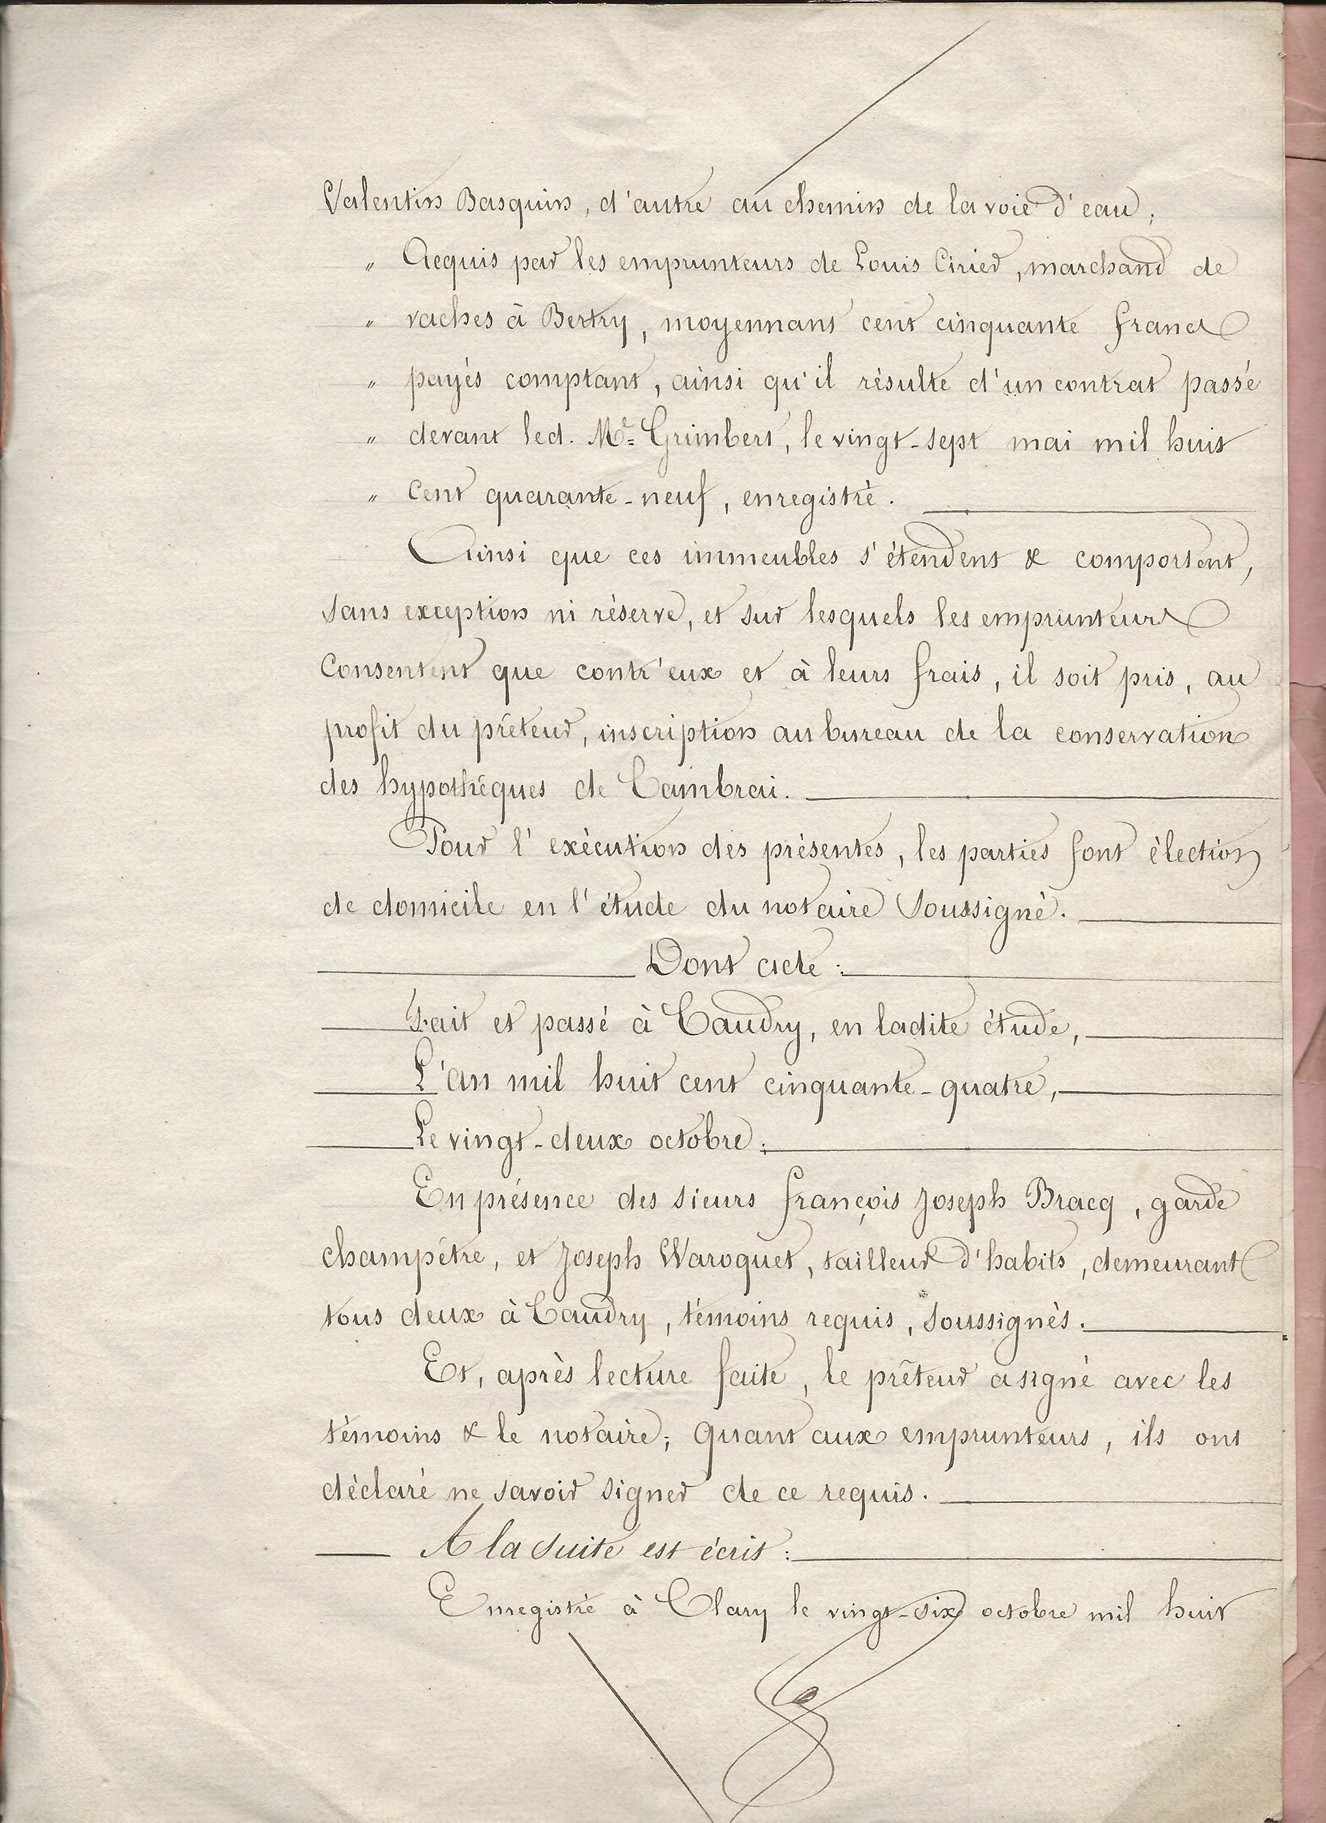 Valentin Basquin, d'autre au chemin de la voie d'eau;
" Acquis par les emprunteurs de Louis Cirier, marchand de
" vaches à Bertry, moyennant cent cinquante francs
" payés comptant, ainsi qu'il résulte d'un contrat passé
" devant led. Me. Grimbert, le vingt-sept mai mil huit
" cent quarante-neuf, enregistré.
Ainsi que ces immeubles s'étendent & comportent,
sans exception ni réserve, et sur lesquels les emprunteurs
consentent que contr'eux et à leurs frais, il soit pris, au
profit du prêteur, inscription au bureau de la conservation
des hypothèques de Cambrai.
Pour l'exécution des présentes, les parties font élection
de domicile en l'étude du notaire soussigné.
Dont acte:
Fait et passé à Caudry, en ladite étude,
L'an mil huit cent cinquante-quatre,
Le vingt-deux octobre;
En présence des sieurs françois Joseph Bracq, garde
champêtre, et Joseph Waroquet, tailleur d'habits, demeurant
tous deux à Caudry, témoins requis, soussignés.
Et, après lecture faite, le prêteur a signé avec les
témoins & le notaire; quant aux emprunteurs, ils ont
déclaré ne savoir signer de ce requis.
A la suite est écrit:
Enregistré à Clary le vingt-six octobre mil huit